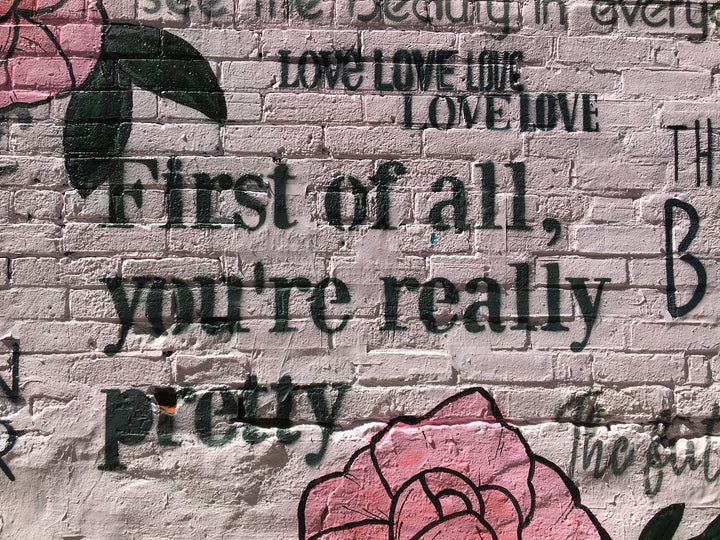 see the Beauty in every
LOVE LOVE LOVE
LOVE LOVE
First of all,
you're really
pretty
TH
B
The fut